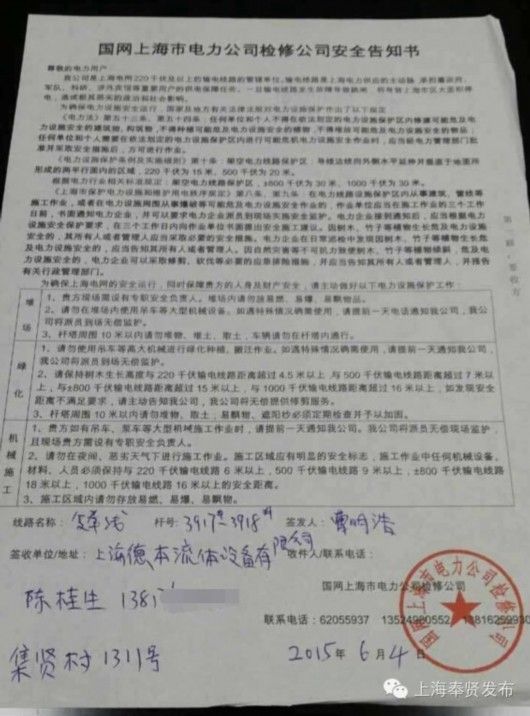 国网上海市电力公司检修公司安全告知书
尊敬的电力用户
我公司是上海电网220千伏及以上的输电线路的管理单位，输电线路是上海电力供应的主动脉，承担着政府、
军队、科研、涉外宾馆等重要用户的供电保障任务。一旦输电线路发生故障导致跳闸，将导致上海市区大面积停
电，造成极其恶劣的政治和社会影响。
为确保电力设施安全运行，国家及地方有关法律法规对电力设施保护作出了以下规定
《电力法》第五十三条、第五十四条：任何单位和个人不得在依法划定的电力设施保护区内修建可能危及电
力设施安全的建筑物、构筑物，不得种植可能危及电力设施安全的植物，不得堆放可能危及电力设施安全的物品；
任何单位和个人需要在依法划定的电力设施保护区内进行可能危及电力设施安全作业时，应当经电力管理部门批
准并采取安全措施后，方可进行作业。
《电力设施保护条例及实施细则》第十条：架空电力线路保护区，导线边线向外侧水平延伸并垂直于地面所
形成的两平行面内的区域，220千伏为15米，500千伏为20米。
根据电力行业相关标准规定：架空电力线路保护区，±800千伏为30米，1000千伏为30米。
《上海市保护电力设施和维护用电秩序规定》第八、第九条：在电力设施保护区内从事建筑、管线等
施工作业，或者在电力设施周围从事爆破等可能危及电力设施安全作业的，作业单位应当在施工作业的三个工作
日前，书面通知电力企业，并可以要求电力企业派员到现场实施安全监护。电力企业接到通知后，应当根据电力
设施安全保护要求，在三个工作日内向作业单位书面提出安全施工建议。因树木、竹子等植物生长危及电力设施
安全的，其所有人或者管理人应当采取必要的安全措施。电力企业在日常巡检中发现因树木、竹子等植物生长危
及电力设施安全的，应当告知其所有人或者管理人。因自然灾害等不可抗力致使树木、竹子等植物倾斜，危及电
力设施安全的，电力企业可以采取修剪、砍伐等必要的应急排险措施，并应当告知其所有人或者管理人，并报告
有关行政管理部门。
为确保上海电网的安全运行，同时保障贵方的人身及财产安全，请主动做好以下电力设施保护工作：
堆场
1、贵方现场需设有专职安全负责人。堆场内请勿放易燃、易爆、易飘物品。
2、请勿在堆场内使用吊车等大型机械设备。如遇特殊情况确需使用，请提前一天电话通知我公司，我公
司将派员到场无偿监护。
3、杆塔周围10米以内请勿堆物、堆土、取土，车辆请勿在杆塔内通行。
绿化
1、请勿使用吊车等高大机械进行绿化种植、搬迁作业。如遇特殊情况确需使用，请提前一天通知我公司，
我公司将派员到场无偿监护。
2、请保持树木生长高度与220千伏输电线路距离超过4.5米以上，与500千伏输电线路距离超过7米以
上，与±800千伏输电线路距离超过15米以上，与1000千伏输电线路距离超过16米以上，如发现安全
距离不满足要求，请主动告知我公司，我公司将无偿提供修剪服务。
3、杆塔周围10米以内请勿堆物、取土，易飘物、遮阳纱必须定期检查并予以加固。
机械施工
1、贵方如有吊车、泵车等大型机械施工作业时，请提前一天通知我公司。我公司将派员无偿现场监护，
且现场贵方需设有专职安全负责人。
2、请勿在夜间、恶劣天气下进行施工作业。施工区域应有明显的安全标志，施工作业中任何机械设备、
材料、人员必须保持与220千伏输电线路6米以上，500千伏输电线路9米以上，±800千伏输电线路
18米以上，1000千伏输电线路16米以上的安全距离。
3、施工区域内请勿存放易燃、易爆、易飘物。
线路名称： 杆号：3917# 3918# 签发人：曹明浩
签收单位/地址：上海德本流体设备有限公司 收件人/联系电话：
陈桂生 1381
国网上海市电力公司检修公司
联系电话：62055937 13524980552
集贤村1311号
2015年6月4日
第一联：签收方
国网上海市电力公司检修公司
上海奉贤发布